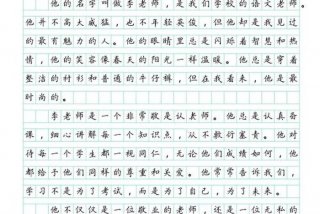 他的名字叫做李老师，是我们学校的语文老师。
他并不高大威猛，也不年轻英俊，但他却是我见过
的最有魅力的人。他的眼睛里总是闪烁着智慧和热
情，他的笑容像春天的阳光一样温暖。他总是穿着
整洁的衬衫和普通的牛仔裤，但在我看来，他是最
时尚的。
李老师是一个非常敬业认真老师。他总是认真备
课，细心讲解每一个知识点，从不敷衍塞责。他对
待每一个学生都一视同仁，无论他们成绩如何，他
都给予他们同样的尊重和关爱。他常常告诉我们，
学习不是为了考试，而是为了自己，为了未来。
他不仅仅是一位敬业的老师，还是一位无私的